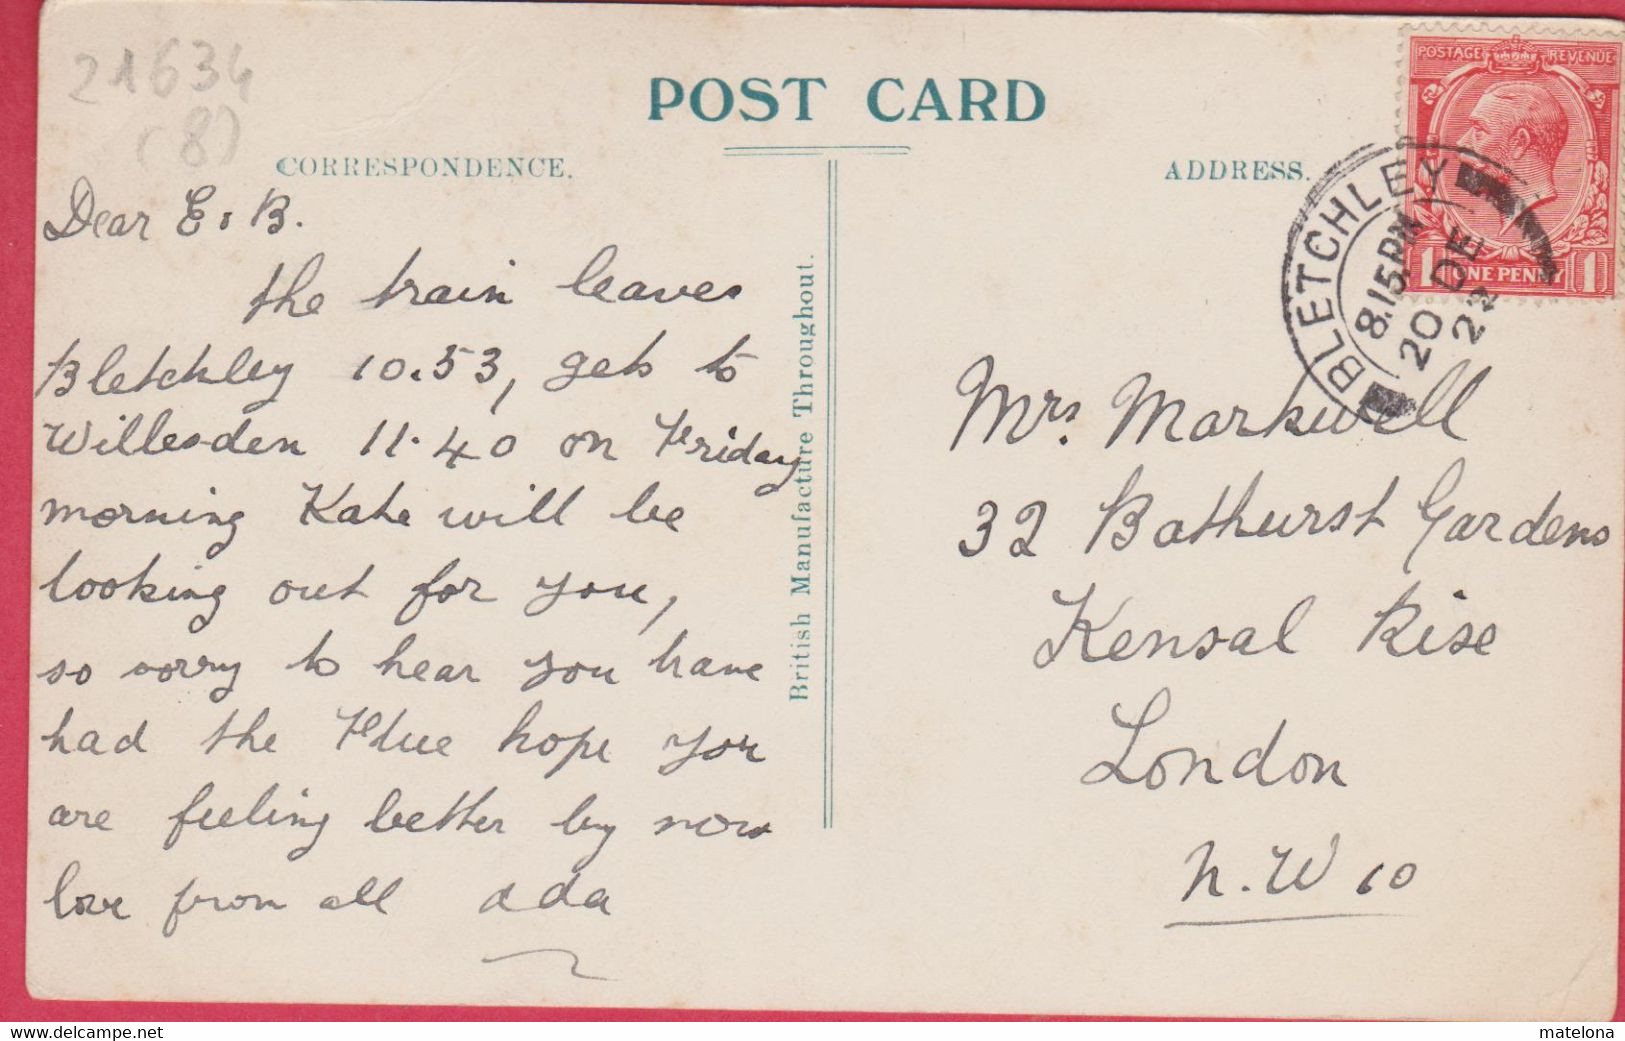 21634
(8)
POST CARD
CORRESPONDENCE.
ADDRESS.
Dear E & B.
the train leaves
Bletchley 10.53, gets to
Willesden 11.40 on Friday
morning Kate will be
looking out for you,
so sorry to hear you have
had the Flue hope you
are feeling better by now
love from all Ada
British Manufacture Throughout.
POSTAGE REVENUE
1 ONE PENNY 1
BLETCHLEY
8.15 PM
20 DE
Mrs. Markwell
32 Bathurst Gardens
Kensal Rise
London
N.W 10
matelona